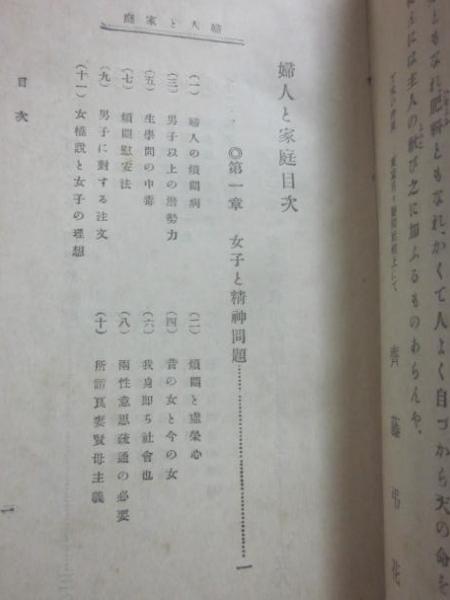 ともなれ、肥料ともなれ、かくて人よく自づから天の命を
には主人の歓び之に加ふるものあらんや。
齊藤弔花
婦人と家庭
婦人と家庭目次
◎第一章 女子と精神問題……………一
（一）婦人の煩悶病
（二）煩悶と虚榮心
（三）男子以上の潜勢力
（四）昔の女と今の女
（五）生學問の中毒
（六）我身即ち社會也
（七）煩悶慰安法
（八）兩性意思疏通の必要
（九）男子に對する注文
（十）所謂良妻賢母主義
（十一）女權説と女子の理想
目次
一